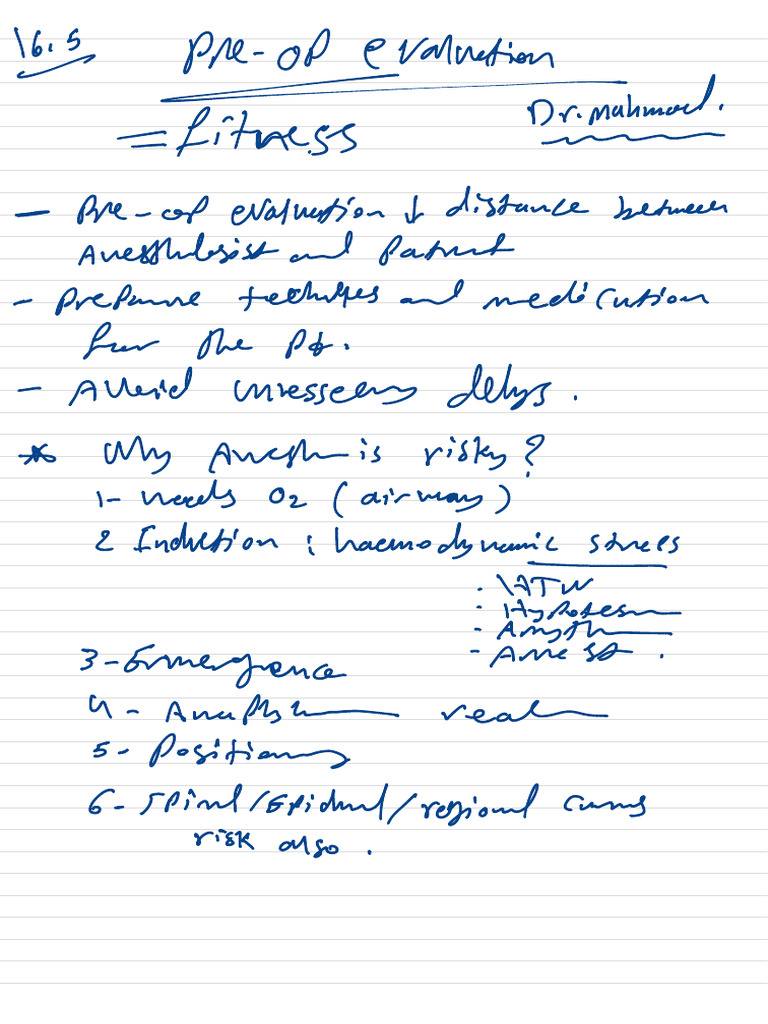 16.5
Pre-op evaluation
Dr. Mahmoud.
= fitness
- Pre-op evaluation ↓ distance between
Anesthlogist and Patient
- Prepare techniques and medication
for the Pt.
- Avoid unnessecery delays.
* Why Anesth is risky?
1- needs O2 (airway)
2 Induction : haemodynamic stress
. HTN
. Hypotesn
- Arryth
- Arrest.
3- Emergence
4- Anaphy
5- Positioning
6- Spinal/Epidural/regional
risk also.